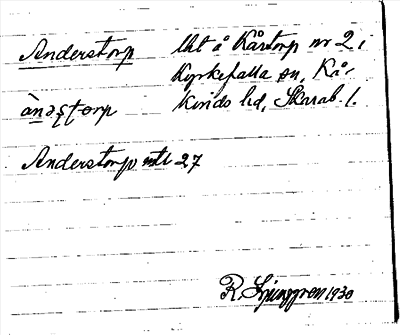 Anderstorp lht å Kårtorp nr 2 i
Kyrkefalla sn, Kå-
kinds hd, Skarab. l.
ànəʂt̩orp
Anderstorp utl 27
R. Ljunggren 1930